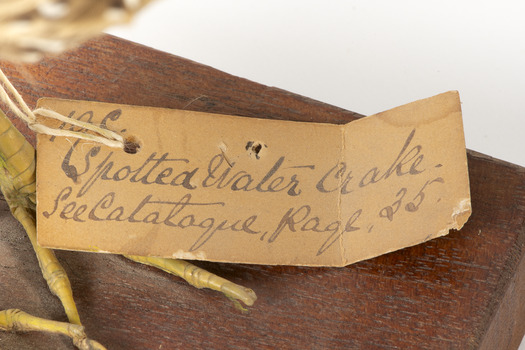 Spotted Water Crake.
See Catalogue, Page, 35.